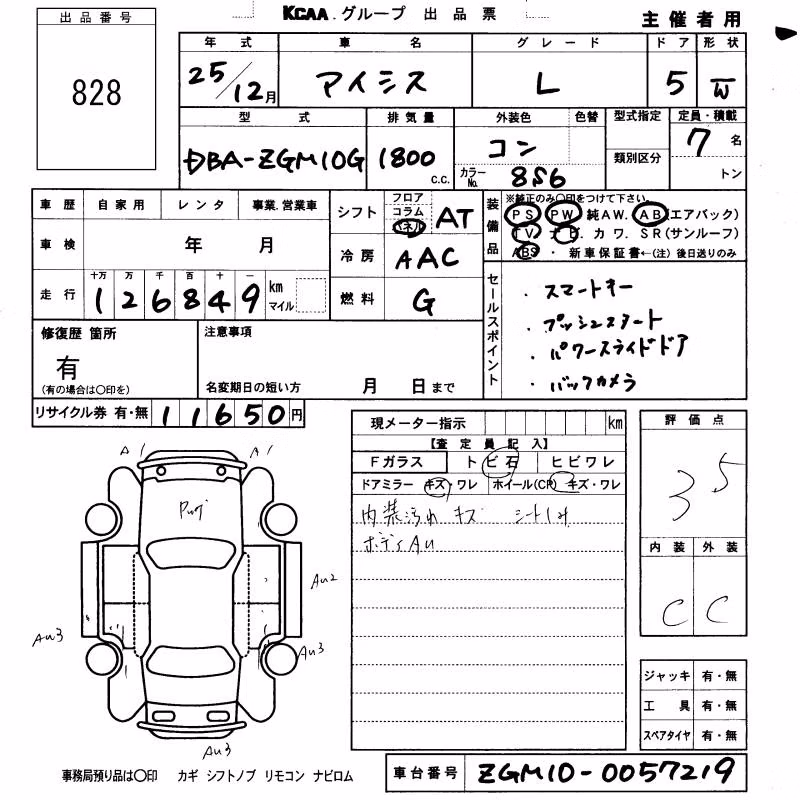 KCAA.グループ 出品票
主催者用
出品番号
828
年式 車名 グレード ドア 形状
25/12月 アイシス L 5 W
型式 排気量 外装色 色替 型式指定 定員・積載
DBA-ZGM10G 1800 c.c. コン 7名
カラーNo. 8S6 類別区分 トン
車歴 自家用 レンタ 事業.営業車
車検 年 月
走行 十万 万 千 百 十 一
126849 km マイル
シフト フロア コラム パネル AT
冷房 AAC
燃料 G
装備品 ※純正のみ〇印をつけて下さい。
PS PW 純AW. AB (エアバック)
TV. ナビ. カワ. SR(サンルーフ)
ABS ・ 新車保証書←(注)後日送りのみ
セールスポイント
・スマートキー
・プッシュスタート
・パワースライドドア
・バックカメラ
修復歴 箇所
有
(有の場合は〇印を)
注意事項
名変期日の短い方 月 日まで
リサイクル券 有・無 11650円
現メーター指示 km
【査定員記入】
Fガラス トビ石 ヒビワレ
ドアミラー キズ・ワレ ホイール(CP) キズ・ワレ
内装汚れ キズ
ボディAu
評価点
3.5
内装 外装
C C
A1 A1
Au2
Au3 Au3
Au3
ジャッキ 有・無
工具 有・無
スペアタイヤ 有・無
事務局預り品は〇印 カギ シフトノブ リモコン ナビロム
車台番号 ZGM10-0057219